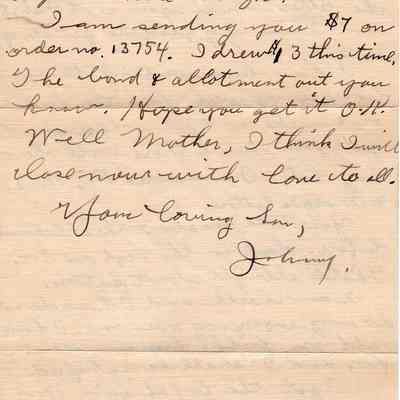 I am sending you $7 on
order no. 13754. I drew $13 this time,
The bond & allotment out you
know. Hope you get it O.K.
Well Mother, I think I will
close now with love to all.
Your loving Son,
Johnny.